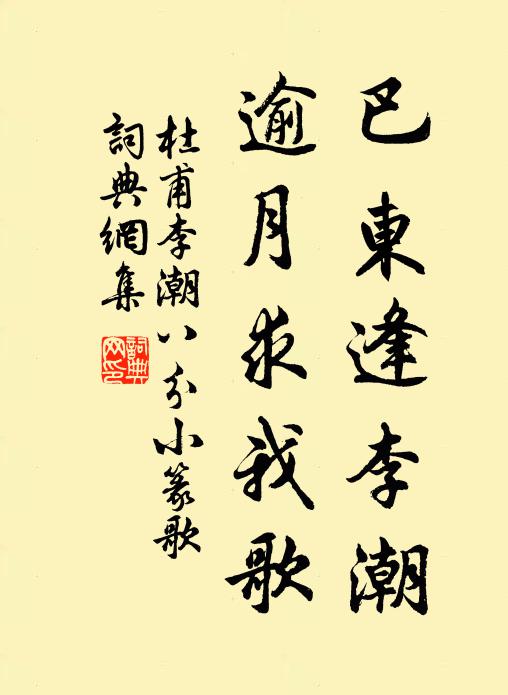 巴東逢李潮
逾月求我歌
杜甫李潮八分小篆歌
詞典網集
詞典網印